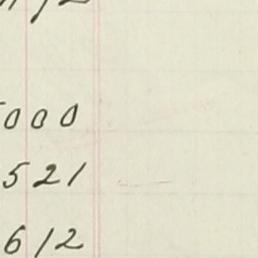 000
521
612